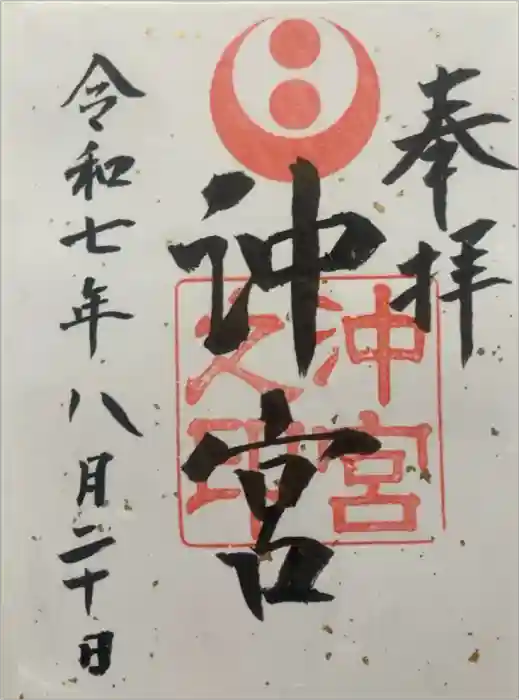 奉拝
沖宮
沖宮之印
令和七年八月二十日